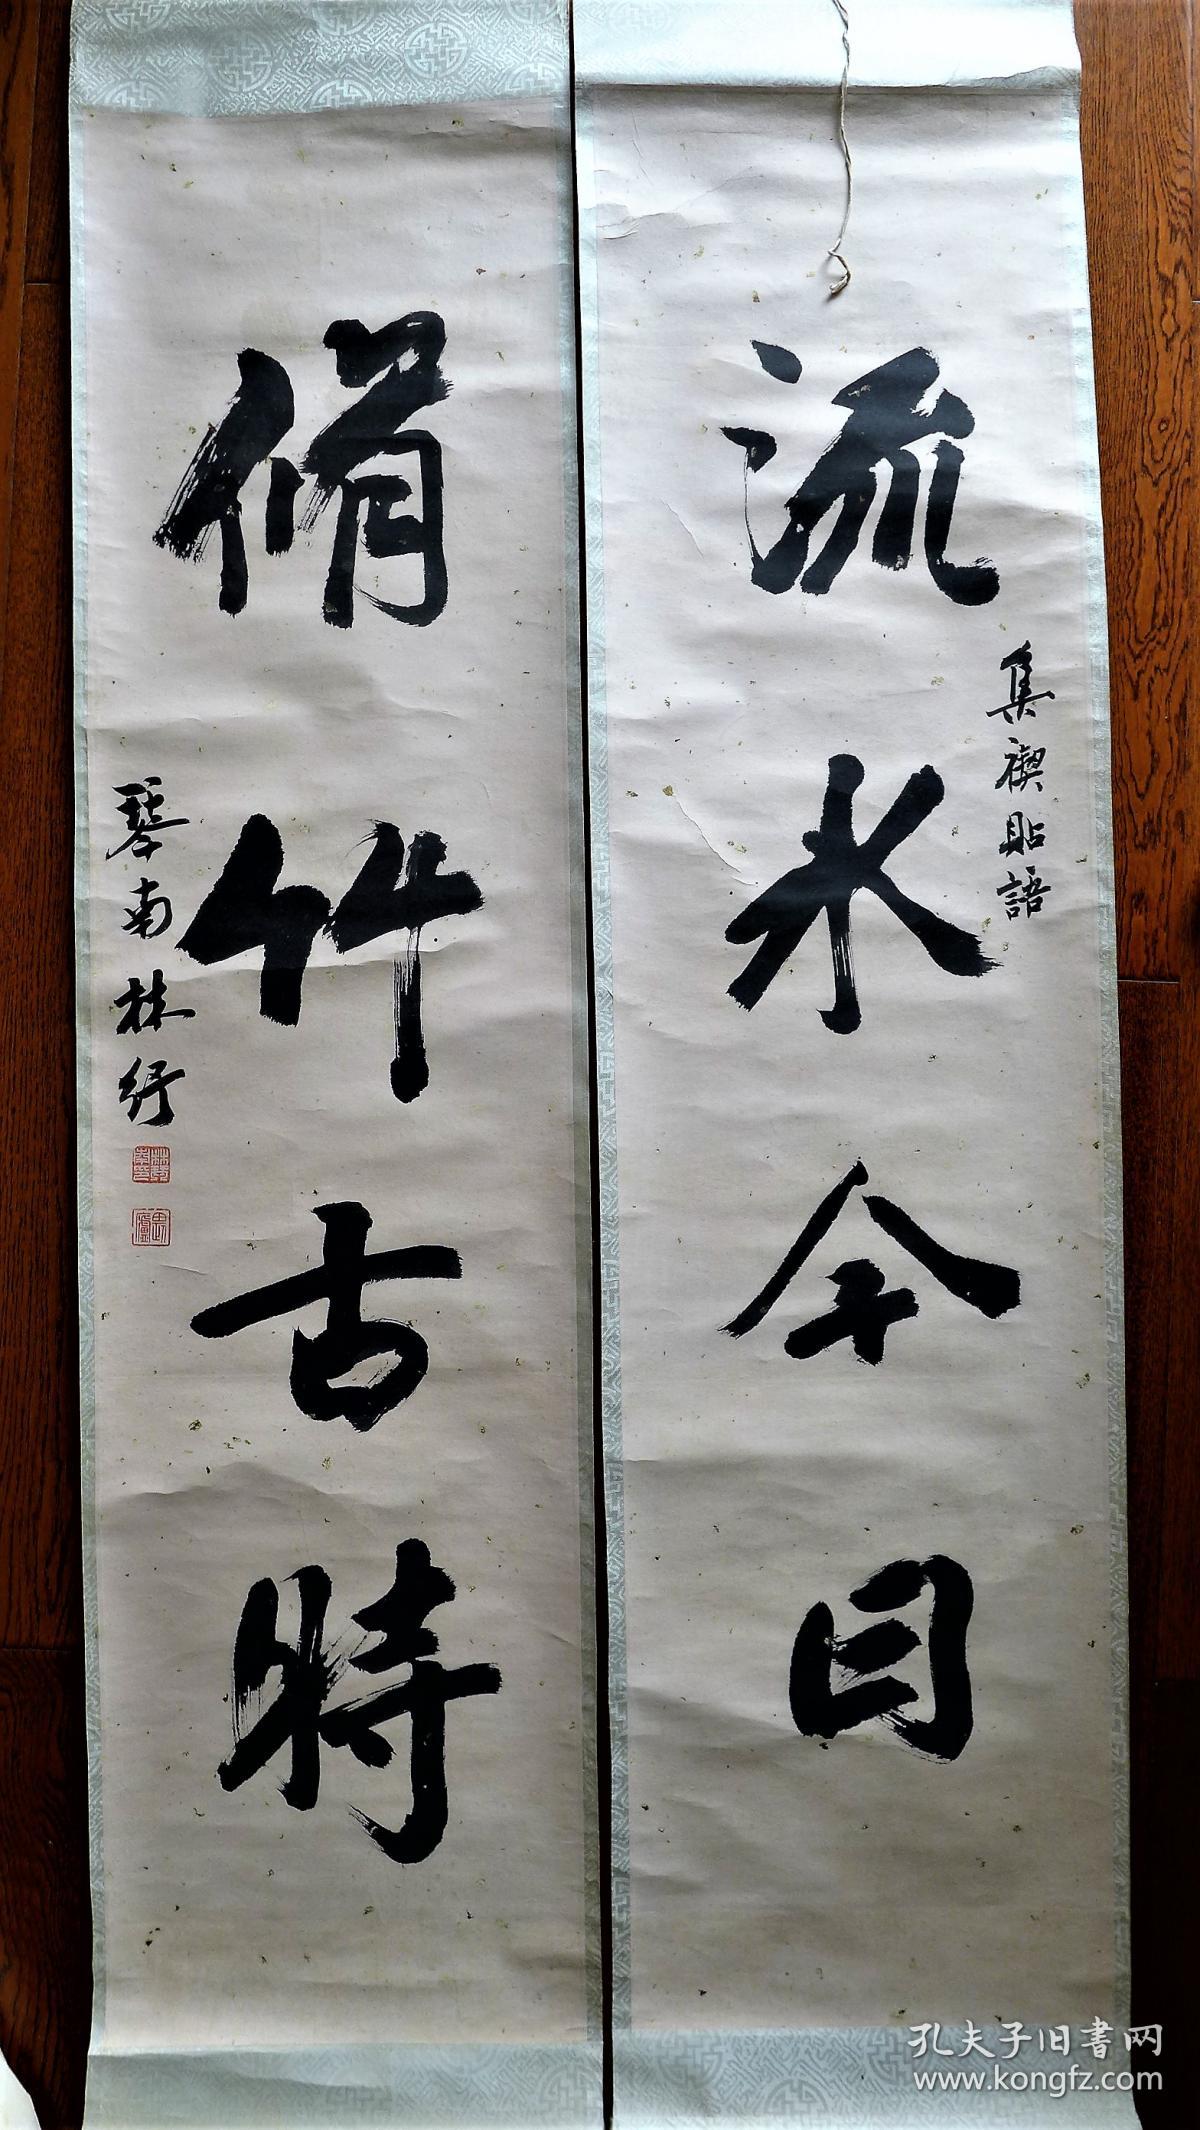 流水今日
集禊貼語
脩竹古時
琴南林紓
畏廬
孔夫子旧書网
www.kongfz.com